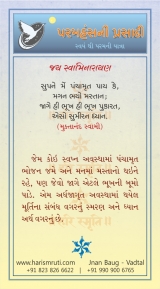 પરમહંસની પ્રસાદી
સ્વને થી પરમની યાત્રા
જય સ્વામિનારાયણ
સુપને મેં પંચામૃત પાય કે,
મગન ભયો મસ્તાન;
જાગે હી ભૂખ હી ભૂખ પુકારત,
એસો સુમીરન ધ્યાન.
(મુક્તાનંદ સ્વામી)
જેમ કોઈ સ્વપ્ન અવસ્થામાં પંચામૃત
ભોજન જમે અને મનમાં મસ્તાનો થઈને
રહે, પણ જેવો જાગે એટલે ભૂખની બૂમો
પાડે. એમ અર્ધજાગૃત-અવસ્થામાં થયેલ
મૂર્તિના સંબંધ વગરનું સ્મરણ અને ધ્યાન
અર્થ વગરનું છે.
www.harismruti.com
Jnan Baug - Vadtal
+91 823 826 6622
+91 990 900 6765